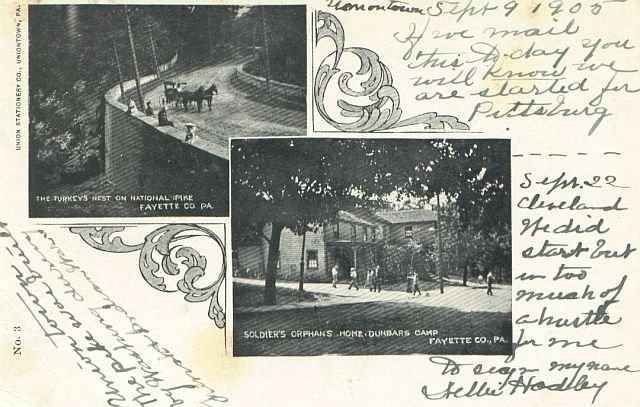 Uniontown Sept 9 1905
If we mail
this to-day you
will know we
are started for
Pittsburg
Sept. 22
Cleveland
We did
start but
in too
much of
a hustle
for me
to sign my name
Nellie Hadley
UNION STATIONERY CO., UNIONTOWN, PA.
THE TURKEY'S NEST ON NATIONAL PIKE
FAYETTE CO PA.
SOLDIER'S ORPHANS HOME - DUNBARS CAMP
FAYETTE CO., PA.
No. 3
The pike was built
by